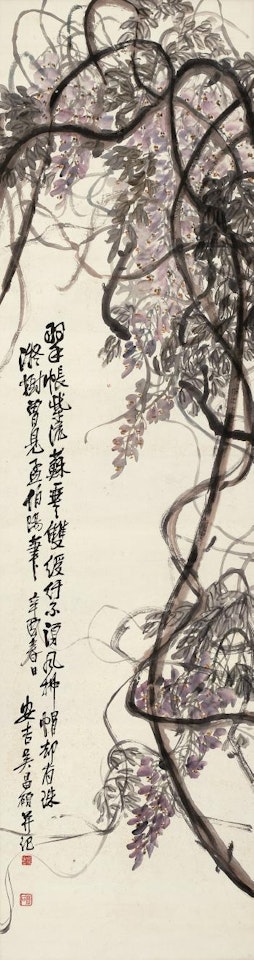 翠帳紫流蘇垂雙綬紆不須風拂帽却有珠
樹曾見孟伯陽筆 辛酉春日
安吉吳昌碩并記